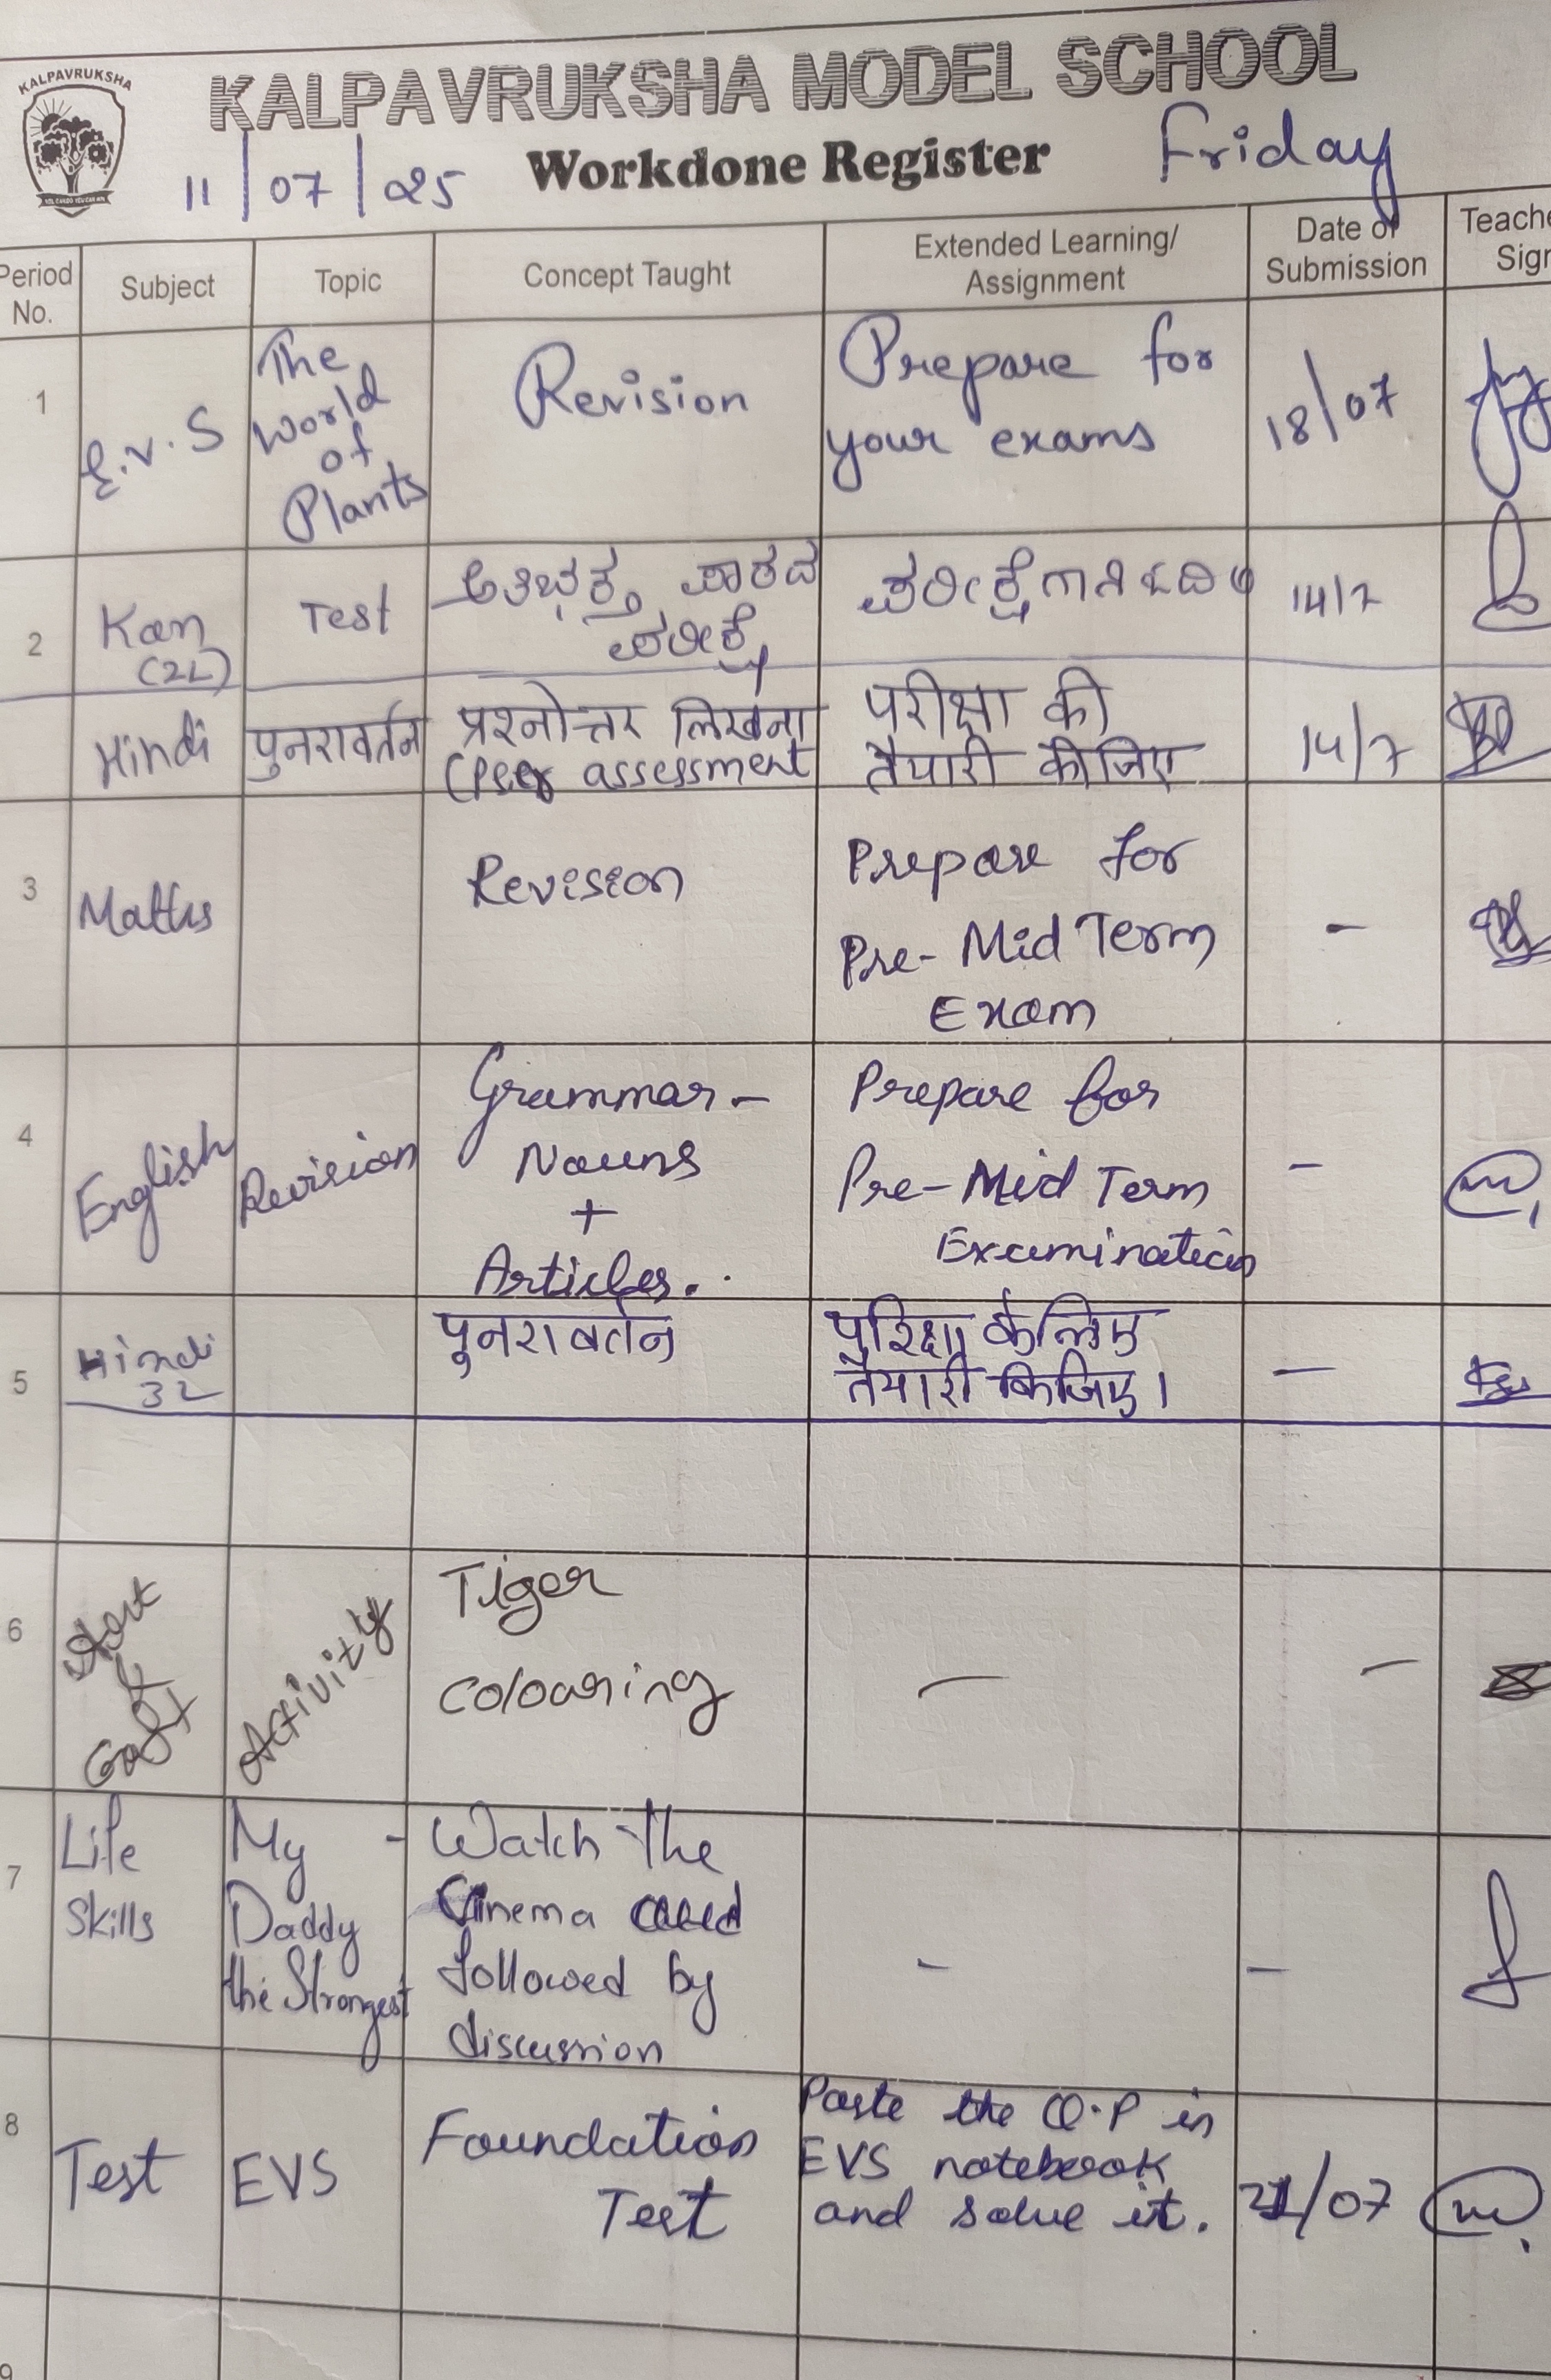 KALPAVRUKSHA
KALPAVRUKSHA MODEL SCHOOL
11/07/25 Workdone Register Friday
Period No.
Subject
Topic
Concept Taught
Extended Learning/
Assignment
Date of
Submission
Teache
Sign
1
E.V.S
The
World
of
Plants
Revision
Prepare for
your exams
18/07
2
Kan
(2L)
Test
ಪಾಠದ
ಪರೀಕ್ಷೆ
14/7
Hindi
पुनरावर्तन
प्रश्नोत्तर लिखना
(Peer assessment
परीक्षा की
तैयारी कीजिए
14/7
3
Maths
Revision
Prepare for
Pre-Mid Term
Exam
-
4
English
Revision
Grammar -
Nouns
+
Articles.
Prepare for
Pre-Mid Term
Examination
-
5
Hindi
3L
पुनरावर्तन
परिक्षा के लिए
तैयारी किजिए।
-
6
&
Activity
Tiger
colouring
-
-
7
Life
Skills
My -
Daddy
the Strongest
Watch the
Cinema
followed by
discussion
-
-
8
Test
EVS
Foundation
Test
Paste the Q.P in
EVS notebook
and solve it.
21/07
9